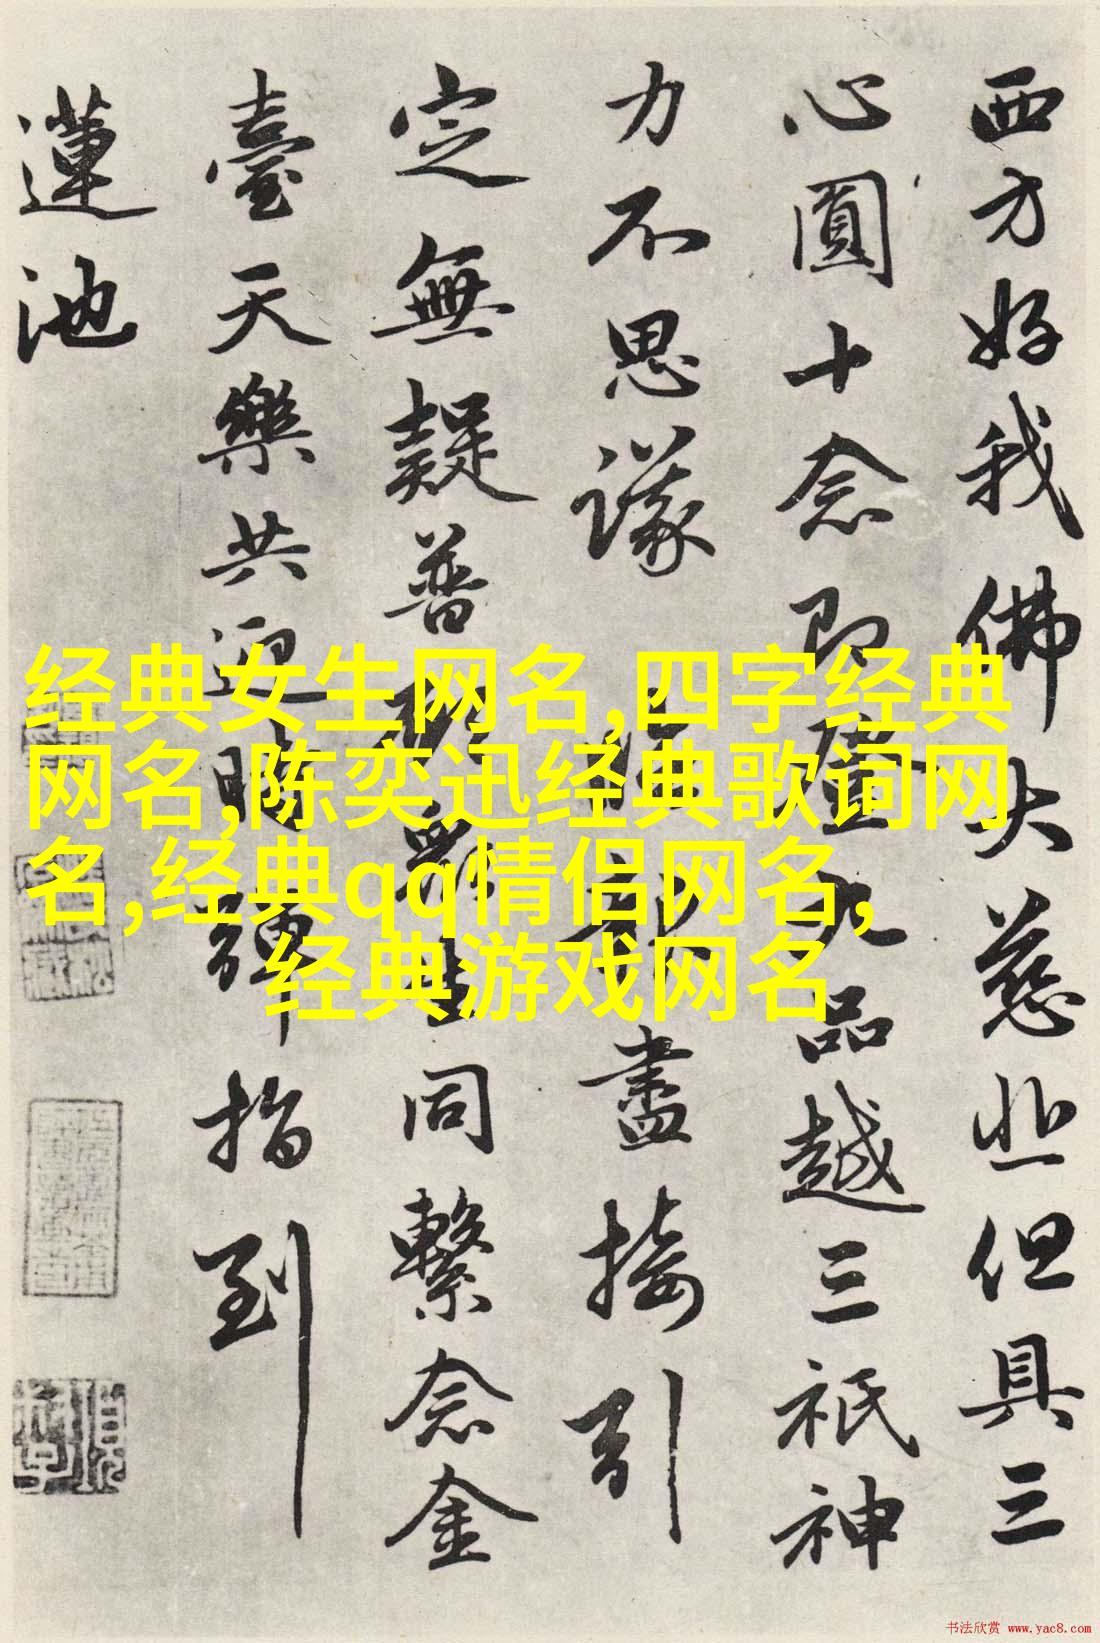 西方好我佛大慈悲但具三
心圓十念即登九品越三祇神
力不思議報盡接引
定無疑普願衆生同繫念金
臺天樂共迎時彈指到
蓮池
经典女生网名,四字经典
网名,陈奕迅经典歌词网
名,经典qq情侣网名,
经典游戏网名
书法欣赏 www.yac8.com